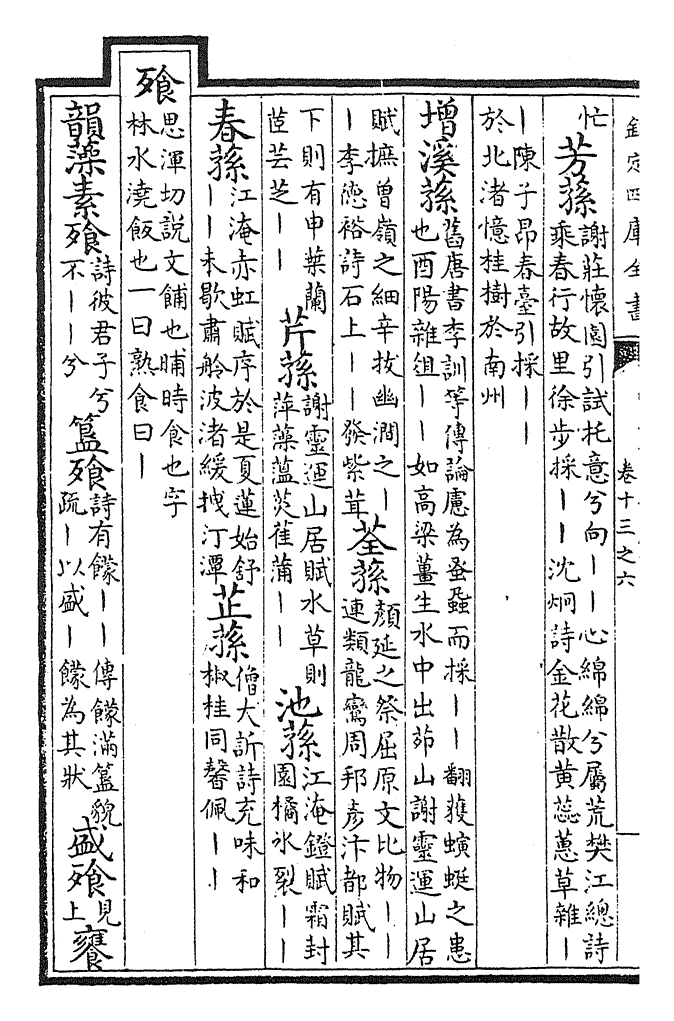 欽定四庫全書
卷十三之六
忙
芳蓀
謝莊懷園引試托意兮向丨丨心綿綿兮屬荒樊江總詩
乘春行故里徐步採丨丨沈炯詩金花散黃蕊蕙草雜丨
丨陳子昂春臺引採丨丨
於北渚憶桂樹於南州
增溪蓀
舊唐書李訓等傳論慮為蚤蝨而採丨丨翻獲螾蜓之患
也酉陽雜俎丨丨如高梁薑生水中出茆山謝靈運山居
賦摭曾嶺之細辛拔幽澗之丨
丨李德裕詩石上丨丨發紫茸
荃蓀
顏延之祭屈原文比物丨丨
連類龍鸞周邦彥汴都賦其
下則有申葉蘭
茝芸芝丨丨
芹蓀
謝靈運山居賦水草則
萍藻薀菼雚蒲丨丨
池蓀
江淹鐙賦霜封
園橘冰裂丨丨
春蓀
江淹赤虹賦序於是夏蓮始舒
丨丨未歇肅舲波渚緩拽汀潭
芷蓀
僧大訢詩充味和
椒桂同馨佩丨丨
飱
思渾切說文餔也晡時食也字
林水澆飯也一曰熟食曰丨
韻藻素飱
詩彼君子兮
不丨丨兮
簋飱
詩有饛丨丨傳饛滿簋貌
疏丨以盛丨饛為其狀
盛飱
見
上
饔